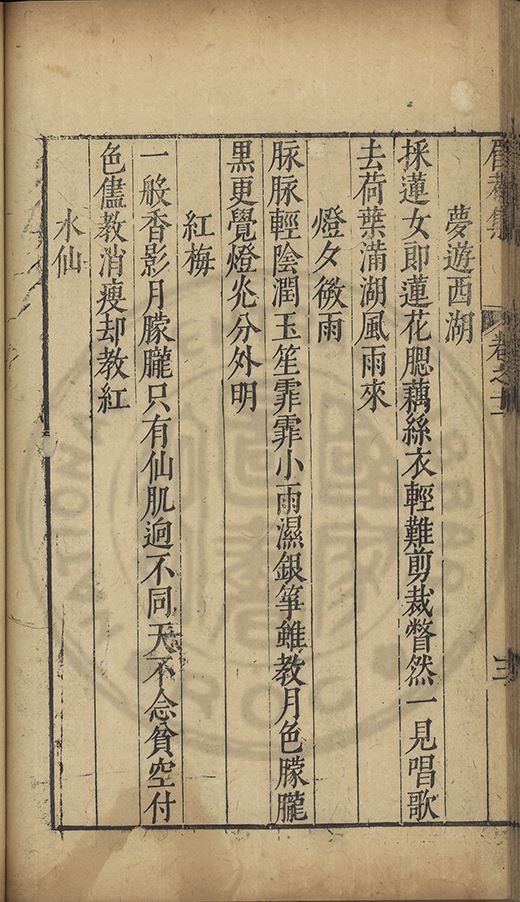 卷之十一 三
夢遊西湖
採蓮女即蓮花腮藕絲衣輕難剪裁瞥然一見唱歌
去荷葉滿湖風雨來
燈夕微雨
脉脉輕陰潤玉笙霏霏小雨濕銀箏雖教月色朦朧
黑更覺燈光分外明
紅梅
一般香影月朦朧只有仙肌逈不同天不念貧空付
色儘教消瘦却教紅
水仙